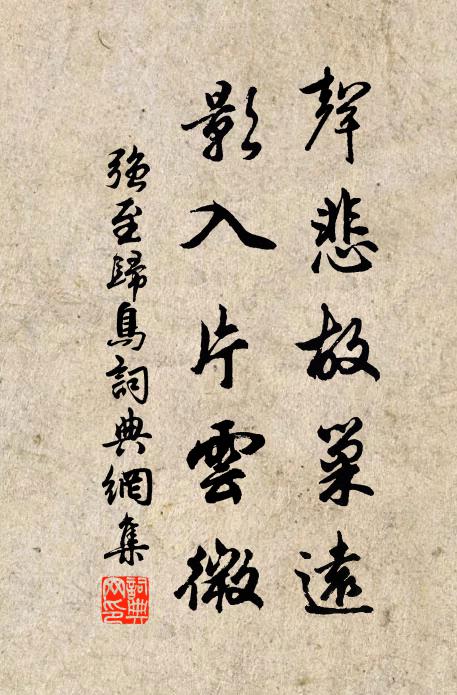 聲悲故巢遠
影入片雲微
強至歸鳥詞典網集
詞典网印